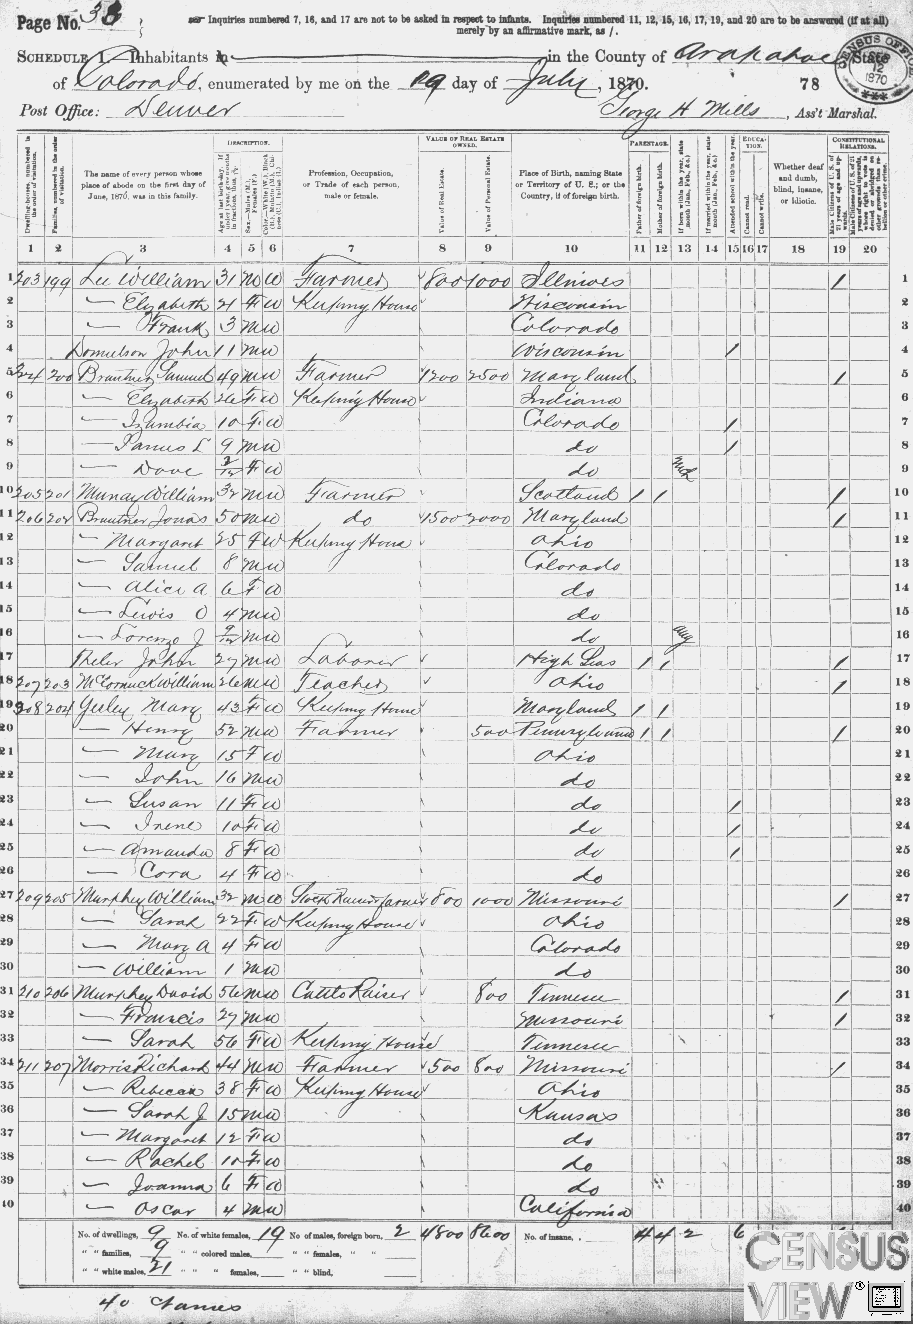 Page No. 33
☞ Inquiries numbered 7, 16, and 17 are not to be asked in respect to infants. Inquiries numbered 11, 12, 15, 16, 17, 19, and 20 are to be answered (if at all)
merely by an affirmative mark, as /.
SCHEDULE 1.—Inhabitants in in the County of Arapahoe, State
of Colorado, enumerated by me on the 19 day of July, 1870. 78
Post Office: Denver George H Mills, Ass't Marshal.
CENSUS OFFICE 12 1870
DESCRIPTION. VALUE OF REAL ESTATE OWNED. PARENTAGE. EDUCATION. CONSTITUTIONAL RELATIONS.
Dwelling-houses, numbered in the order of visitation.
Families, numbered in the order of visitation.
The name of every person whose place of abode on the first day of June, 1870, was in this family.
Age at last birth-day. If under 1 year, give months in fractions, thus, 3/12
Sex.—Males (M.), Females (F.)
Color.—White (W.), Black (B.), Mulatto (M.), Chinese (C.), Indian (I.)
Profession, Occupation, or Trade of each person, male or female.
Value of Real Estate.
Value of Personal Estate.
Place of Birth, naming State or Territory of U. S.; or the Country, if of foreign birth.
Father of foreign birth.
Mother of foreign birth.
If born within the year, state month (Jan., Feb., &c.)
If married within the year, state month (Jan., Feb., &c.)
Attended school within the year.
Cannot read.
Cannot write.
Whether deaf and dumb, blind, insane, or idiotic.
Male Citizens of U. S. of 21 years of age and upwards.
1 2 3 4 5 6 7 8 9 10 11 12 13 14 15 16 17 18 19 20
1 203 199 Lee William 31 M W Farmer 800 1000 Illinois / 1
2 — Elizabeth 21 F W Keeping House Wisconsin 2
3 — Frank 3 M W Colorado 3
4 John 11 M W Wisconsin / 4
5 204 200 Samuel 49 M W Farmer 1200 2500 Maryland / 5
6 — Elizabeth 26 F W Keeping House Indiana 6
7 — 10 F W Colorado / 7
8 — L 9 M W do / 8
9 — Dove F W do 9
10 205 201 Murray William 32 M W Farmer Scotland / / / 10
11 206 202 Brantner Jonas 50 M W do 1500 2000 Maryland / 11
12 — Margaret 25 F W Keeping House Ohio 12
13 — Samuel 8 M W Colorado 13
14 — Alice A 6 F W do 14
15 — Lewis O 4 M W do 15
16 — Lorenzo J 9/12 M W do Aug 16
17 John 27 M W Laborer High Seas / / / 17
18 207 203 McCormick William 26 M W Teacher Ohio / 18
19 208 204 Mary 43 F W Keeping House Maryland / / 19
20 — Henry 52 M W Farmer 500 Pennsylvania / / / 20
21 — Mary 15 F W Ohio 21
22 — John 16 M W do 22
23 — Susan 11 F W do / 23
24 — Irene 10 F W do / 24
25 — Amanda 8 F W do / 25
26 — Cora 4 F W do 26
27 209 205 Murphey William 32 M W Stock Raiser & farmer 800 1000 Missouri / 27
28 — Sarah 22 F W Keeping House Ohio 28
29 — Mary A 4 F W Colorado 29
30 — William 1 M W do 30
31 210 206 Murphey David 56 M W Cattle Raiser 800 Tennessee / 31
32 — Francis 27 M W Missouri / 32
33 — Sarah 56 F W Keeping House Tennessee 33
34 211 207 Morris Richard 44 M W Farmer 500 800 Missouri / 34
35 — Rebecca 38 F W Keeping House Ohio 35
36 — Sarah J 15 M W Kansas 36
37 — Margaret 12 F W do 37
38 — Rachel 10 F W do 38
39 — Joanna 6 F W do 39
40 — Oscar 4 M W California 40
No. of dwellings, 9 No. of white females, 19 No. of males, foreign born, 2 4800 8600 No. of insane, 4 4 2 6
" " families, 9 " " colored males, " " females, "
" " white males, 21 " " " females, " " blind,
40 Names
CENSUS
VIEW®